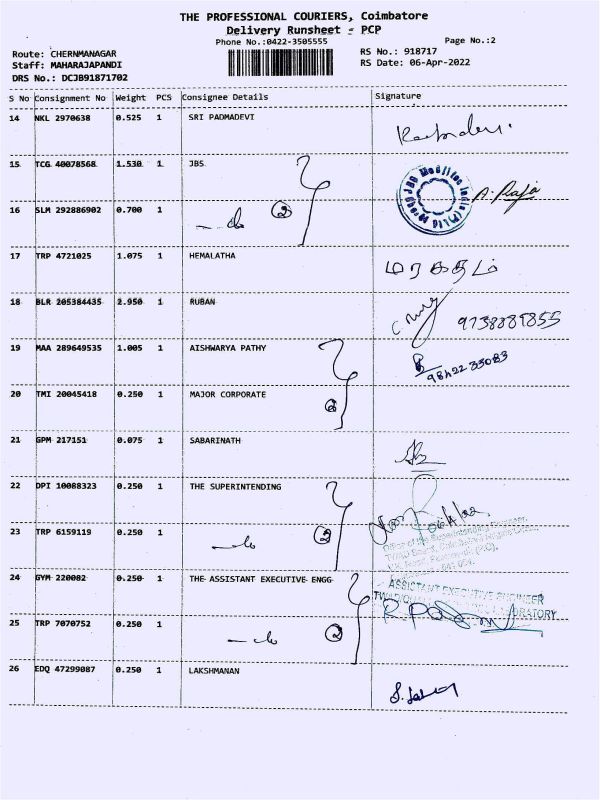 THE PROFESSIONAL COURIERS, Coimbatore
Delivery Runsheet - PCP
Phone No.:0422-3505555
Page No.:2
Route: CHERNMANAGAR
RS No.: 918717
Staff: MAHARAJAPANDI
RS Date: 06-Apr-2022
DRS No.: DCJB91871702
S No Consignment No Weight PCS Consignee Details Signature
14 NKL 2970638 0.525 1 SRI PADMADEVI
15 TCG 40078568 1.530 1 JBS
A. Raja
16 SLM 292886902 0.700 1
2
17 TRP 4721025 1.075 1 HEMALATHA
மரகதம்
18 BLR 205384435 2.950 1 RUBAN
9738889855
19 MAA 289649535 1.005 1 AISHWARYA PATHY
98422 33083
20 TMI 20045418 0.250 1 MAJOR CORPORATE
2
21 GPM 217151 0.075 1 SABARINATH
22 DPI 10088323 0.250 1 THE SUPERINTENDING
23 TRP 6159119 0.250 1
2
24 GYM 220082 0.250 1 THE ASSISTANT EXECUTIVE ENGG
ASSISTANT EXECUTIVE ENGINEER
25 TRP 7070752 0.250 1
2
26 EDQ 47299087 0.250 1 LAKSHMANAN